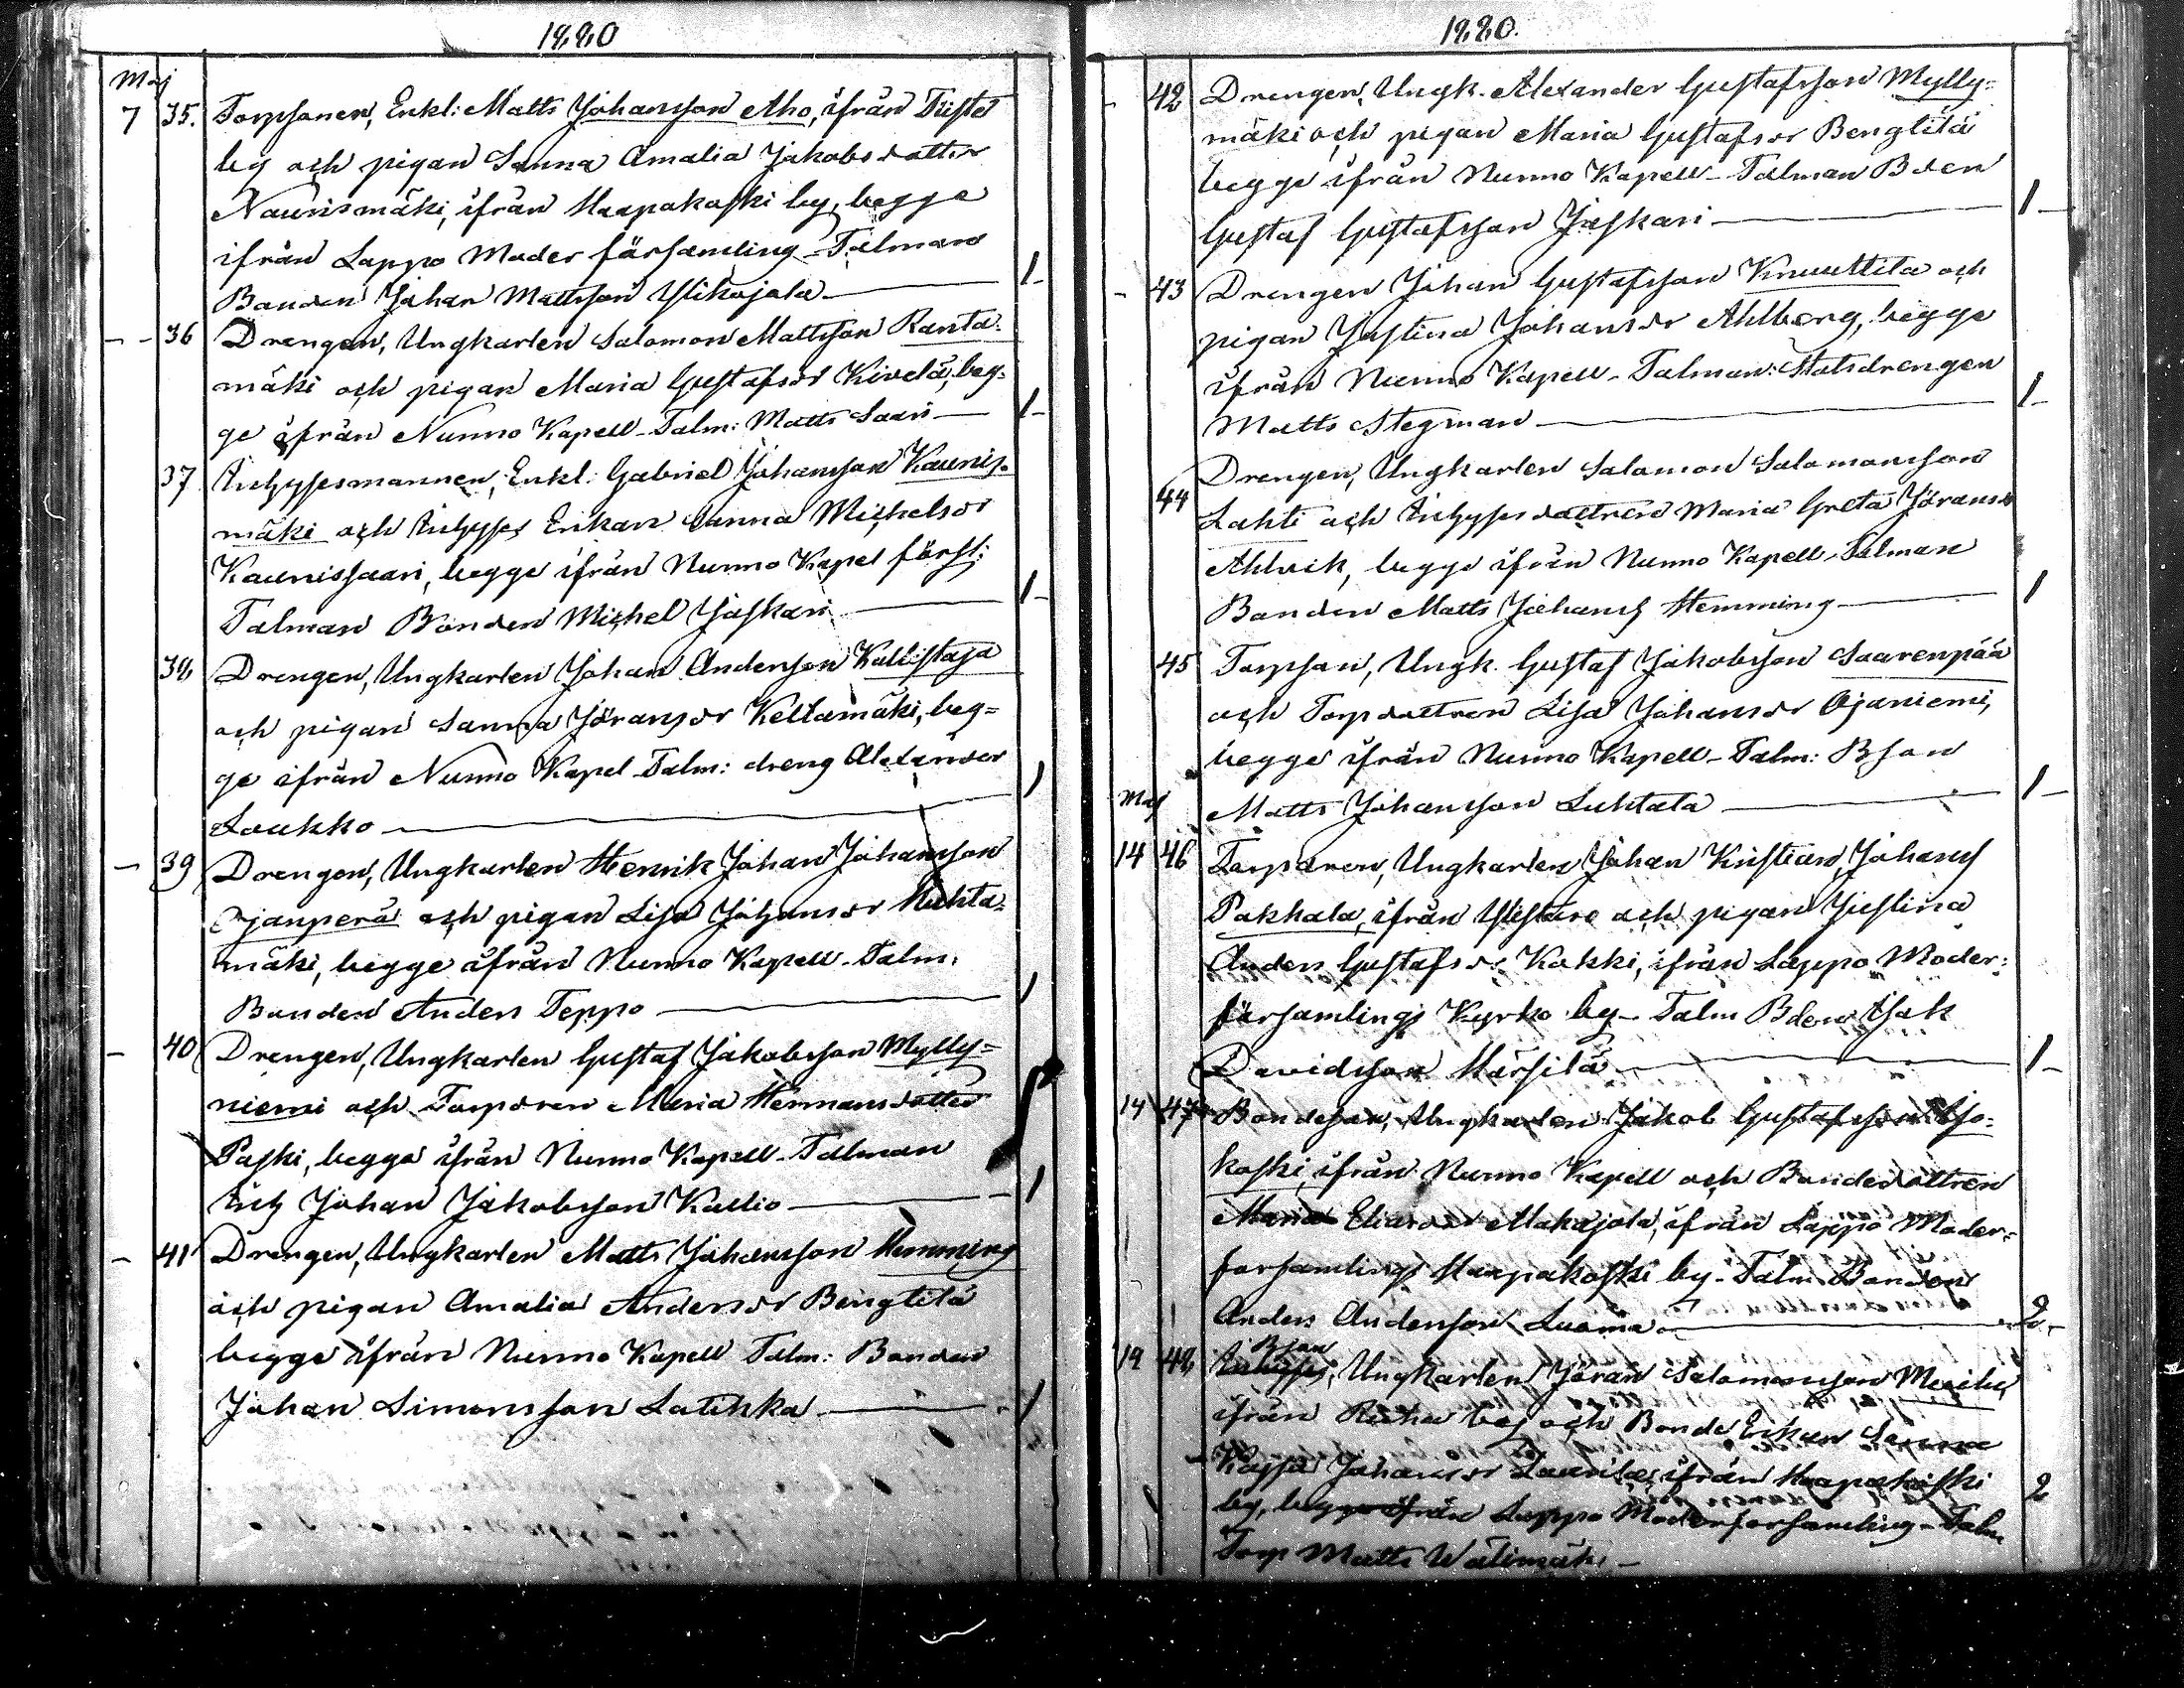 1880
Maj
7 35. Torpsonen, Enkl: Matts Johansson Aho, ifrån Tiistes
by och pigan Sanna Amalia Jakobsdotter
Naurismäki, ifrån Haapakoski by, begge
ifrån Lappo Moder församling - Talman
Bonden Johan Mattsson Ylikojola — 1-
- - 36 Drengen, Ungkarlen Salomon Mattsson Ranta-
mäki och pigan Maria Gustafsdr Kivelä, beg-
ge ifrån Nurmo Kapell - Talm: Matts Saari — 1-
37 Inhysesmannen, Enkl: Gabriel Johansson Kaunis-
mäki och Inhyses Enkan Sanna Michelsdr
Kaunissaari, begge ifrån Nurmo Kapel förs:
Talman Bonden Michel Jaskari — 1-
38 Drengen, Ungkarlen Johan Andersson Kallistaja
och pigan Sanna Jöransdr Keltamäki, beg-
ge ifrån Nurmo Kapel Talm: dreng Alexander
Loukko — 1
- 39 Drengen, Ungkarlen Henrik Johan Johansson
Ojanperä och pigan Lisa Johansdr Huhta-
mäki, begge ifrån Nurmo Kapell - Talm:
Bonden Anders Teppo — 1
- 40 Drengen, Ungkarlen Gustaf Jakobsson Mylly-
niemi och Torpdren Maria Hermansdotter
Paski, begge ifrån Nurmo Kapell - Talman
Inh Johan Jakobsson Kallio — 1
- 41 Drengen, Ungkarlen Matts Johansson Hemming
och pigan Amalia Andersdr Bengtilä
begge ifrån Nurmo Kapell Talm: Bonden
Johan Simonsson Latikka — 1
1880.
- 42 Drengen, Ungk. Alexander Gustafsson Mylly-
mäki och pigan Maria Gustafsdr Bengtilä
begge ifrån Nurmo Kapell - Talman Bden
Gustaf Gustafsson Jaskari — 1-
- 43 Drengen Johan Gustafsson Knuuttila och
pigan Justina Johansdr Ahlberg, begge
ifrån Nurmo Kapell - Talman: Statsdrengen
Matts Stegman — 1-
44 Drengen, Ungkarlen Salomon Salomonsson
Lahti och Inhysesdottren Maria Greta Jöransdr
Ahlvik, begge ifrån Nurmo Kapell - Talman
Bonden Matts Johans Hemming — 1
45 Torpson, Ungk. Gustaf Jakobsson Saarenpää
och Torpdottren Lisa Johansdr Ojaniemi,
begge ifrån Nurmo Kapell - Talm: Bson
Matts Johansson Luhtala — 1-
Maj
14 46 Torparen, Ungkarlen Johan Kristian Johans
Pakkala, ifrån Ylistaro och pigan Justina
Anders Gustafsdr Kakki, ifrån Lappo Moder-
församlings Kyrko by - Talm Bden Isak
Davidsson Härsilä — 1-
14 47 Bondeson, Ungkarlen Jakob Gustafsson
koski, ifrån Nurmo Kapell och Bondedottren
Maria Eliasdr Makajola, ifrån Lappo Moder-
församlings Haapakoski by - Talm Bonden
Anders Andersson Luoma — 2-
Bson
14 48 Inhyses, Ungkarlen Jöran Salomonsson
ifrån by och Bonde Enkan Sanna
Kajsa Johansdr Laurila, ifrån Haapakoski
by, begge ifrån Lappo Moderförsamling - Talm 2
Torp Matts Wälimäki -